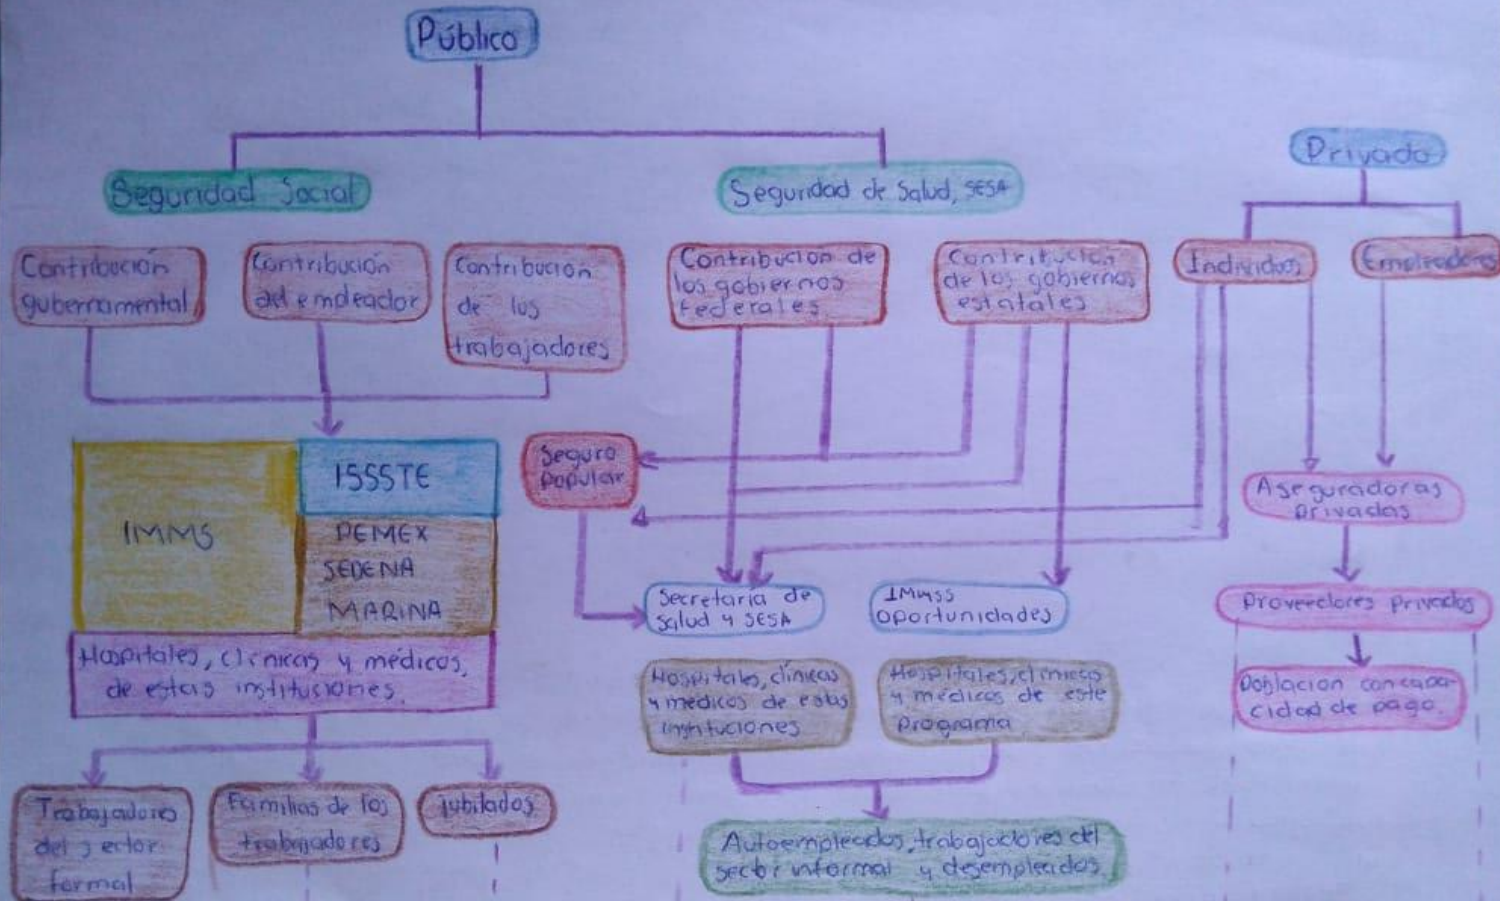 Público
Privado
Seguridad Social
Seguridad de Salud, SESA
Contribución
gubernamental
Contribución
del empleador
Contribución
de los
trabajadores
Contribución de
los gobiernos
federales
Contribución
de los gobiernos
estatales
Individuos
Empleadores
IMMS
ISSSTE
PEMEX
SEDENA
MARINA
Hospitales, clínicas y médicos,
de estas instituciones.
Seguro
Popular
Aseguradoras
privadas
Secretaría de
Salud y SESA
oportunidades
Proveedores privados
Hospitales, clínicas
y medicos de estas
instituciones
Hospitales, clinicas
y medicos de este
Programa
Poblacion con capa-
cidad de pago.
Trabajadores
del sector
formal
Familias de los
trabajadores
jubilados
Autoempleados, trabajadores del
sector informal y desempleados.